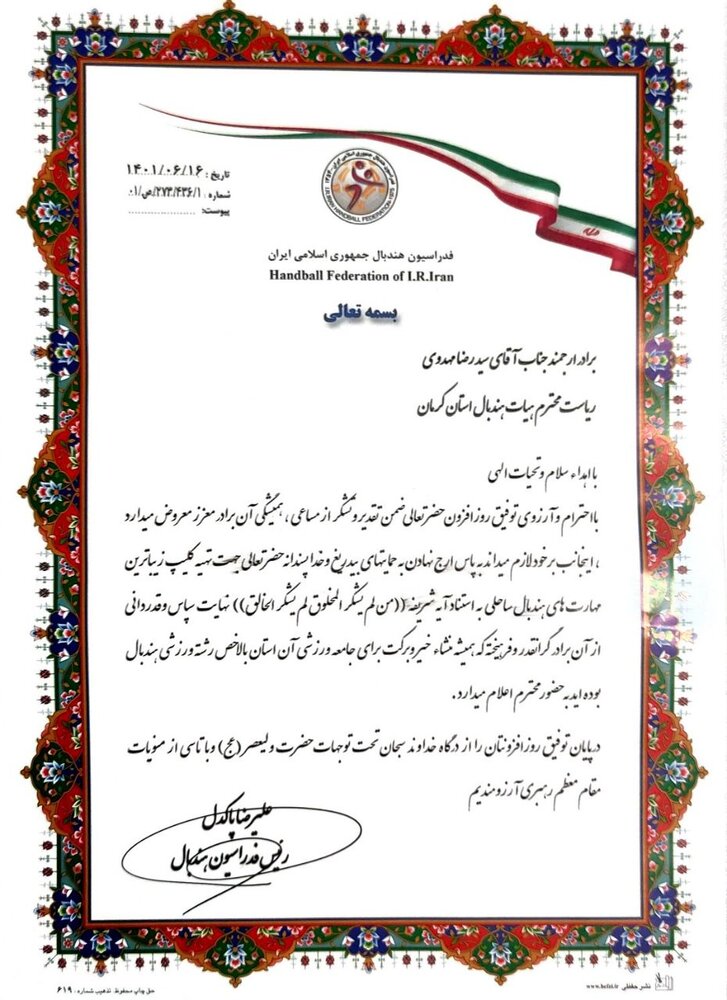 تاریخ : ۱۴۰۱/۰۶/۱۶
شماره : ۲۷۳/۴۳۶/۱/ص/۰۱
پیوست: ....................
فدراسیون هندبال جمهوری اسلامی ایران
Handball Federation of I.R.Iran
بسمه تعالی
برادر ارجمند جناب آقای سید رضا مهدوی
ریاست محترم هیات هندبال استان کرمان
با اهداء سلام و تحیات الهی
با احترام و آرزوی توفیق روزافزون حضرتعالی ضمن تقدیر و تشکر از مساعی ، همیشگی آن برادر معزز معروض میدارد
، اینجانب بر خود لازم میداند به پاس ارج نهادن به حمایتهای بیدریغ و خداپسندانه حضرتعالی جهت تهیه کلیپ زیباترین
مهارت های هندبال ساحلی به استناد آیه شریفه ((من لم یشکر المخلوق لم یشکر الخالق)) نهایت سپاس و قدردانی
از آن برادر گرانقدر و فرهیخته که همیشه منشاء خیر و برکت برای جامعه ورزشی آن استان بالاخص رشته ورزشی هندبال
بوده اید به حضور محترم اعلام میدارد .
در پایان توفیق روزافزونتان را از درگاه خداوند سبحان تحت توجهات حضرت ولیعصر (عج) و با تاسی از منویات
مقام معظم رهبری آرزومندیم
علیرضا پاکدل
رئیس فدراسیون هندبال
حق چاپ محفوظ. تذهیب شماره : ۶۱۹
نشر حفظی www.hefzi.ir